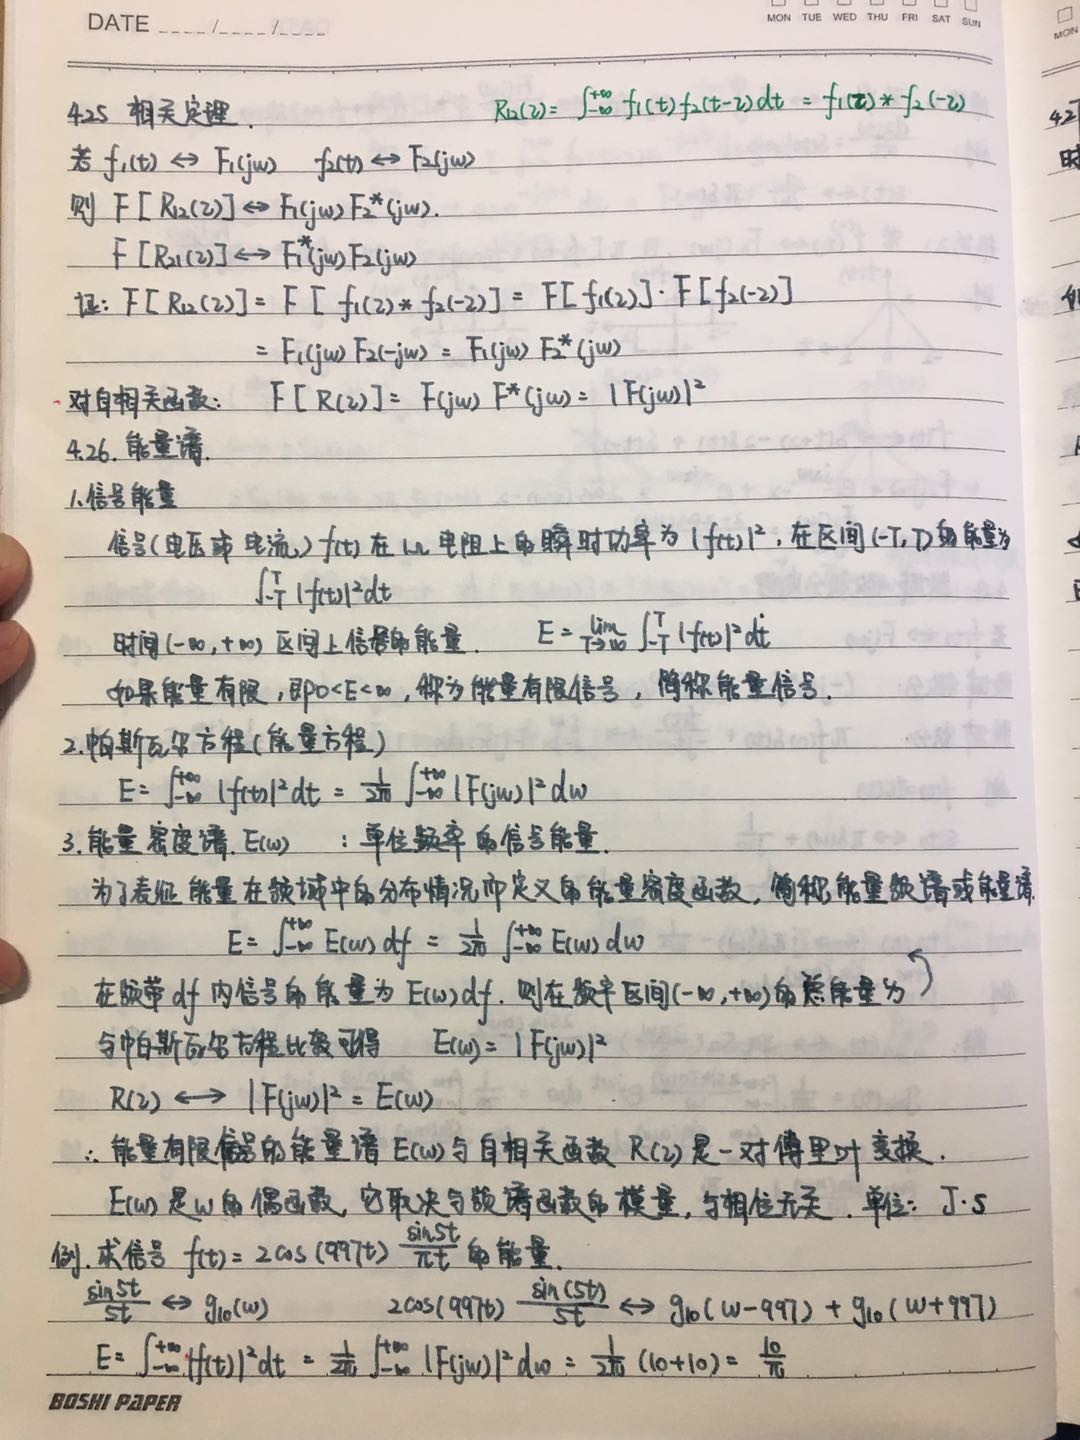 DATE ____/____/____
MON TUE WED THU FRI SAT SUN
MON
4.25 相关定理.
R₁₂(τ)= ∫₋∞⁺∞ f₁(t) f₂(t-τ) dt = f₁(τ) * f₂(-τ)
若 f₁(t) ↔ F₁(jω) f₂(t) ↔ F₂(jω)
则 F[R₁₂(τ)] ↔ F₁(jω) F₂*(jω).
F[R₂₁(τ)] ↔ F₁*(jω) F₂(jω)
证: F[R₁₂(τ)] = F[f₁(τ) * f₂(-τ)] = F[f₁(τ)] · F[f₂(-τ)]
= F₁(jω) F₂(-jω) = F₁(jω) F₂*(jω)
对自相关函数: F[R(τ)] = F(jω) F*(jω) = |F(jω)|²
4.26. 能量谱.
1.信号能量
信号(电压或电流) f(t) 在1Ω电阻上的瞬时功率为|f(t)|², 在区间(-T,T)的能量为
∫₋T^T |f(t)|² dt
时间(-∞,+∞) 区间上信号的能量. E = lim T→∞ ∫₋T^T |f(t)|² dt
如果能量有限, 即0<E<∞, 称为能量有限信号, 简称能量信号.
2.帕斯瓦尔方程(能量方程)
E= ∫₋∞⁺∞ |f(t)|² dt = 1/2π ∫₋∞⁺∞ |F(jω)|² dω
3.能量密度谱. E(ω) : 单位频率的信号能量.
为了表征能量在频域中的分布情况而定义的能量密度函数, 简称能量频谱或能量谱.
E = ∫₋∞⁺∞ E(ω) df = 1/2π ∫₋∞⁺∞ E(ω) dω
在频带df内信号的能量为 E(ω)df. 则在频率区间(-∞,+∞)的总能量为
与帕斯瓦尔方程比较可得 E(ω)= |F(jω)|²
R(τ) ↔ |F(jω)|² = E(ω)
∴ 能量有限信号的能量谱 E(ω)与自相关函数 R(τ)是一对傅里叶变换.
E(ω)是ω的偶函数, 它取决与频谱函数的模量, 与相位无关. 单位: J·s
例. 求信号 f(t)= 2cos(997t) sin5t/πt 的能量.
sin5t/5t ↔ g₁₀(ω) 2cos(997t) sin(5t)/5t ↔ g₁₀(ω-997) + g₁₀(ω+997)
E= ∫₋∞⁺∞ |f(t)|² dt = 1/2π ∫₋∞⁺∞ |F(jω)|² dω = 1/2π (10+10) = 10/π
BOSHI PAPER